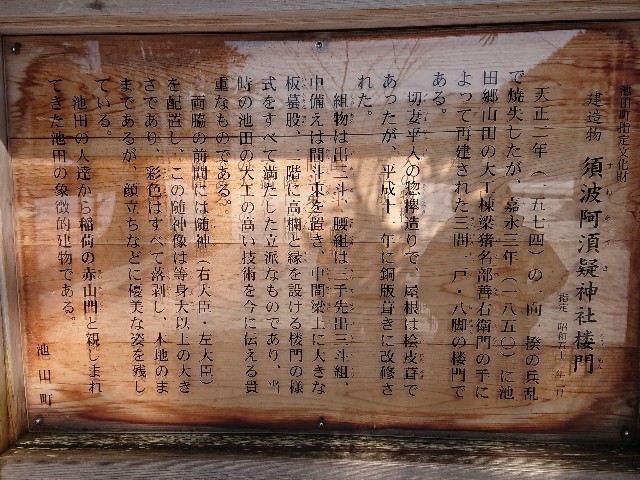 池田町指定文化財
建造物 須波阿湏疑神社楼門
指定 昭和五十 年 月
天正二年(一五七四)の一向一揆の兵乱
で焼失したが、嘉永三年(一八五〇)に池
田郷山田の大工棟梁猪名部善右衛門の手に
よって再建された三間一戸・八脚の楼門で
ある。
切妻平入の惣欅造りで、屋根は桧皮葺で
あったが、平成十一年に銅版葺きに改修さ
れた。
組物は出三斗、腰組は三手先出三斗組、
中備えは間斗束を置き、中間梁上に大きな
板蟇股、一階に高欄と縁を設ける楼門の様
式をすべて満たした立派なものであり、当
時の池田の大工の高い技術を今に伝える貴
重なものである。
両脇の前間には随神(右大臣・左大臣)
を配置し、この随神像は等身大以上の大き
さであり、彩色はすべて落剥し、木地のま
まであるが、顔立ちなどに優美な姿を残し
ている。
池田の人達から稲荷の赤山門と親しまれ
てきた池田の象徴的建物である。
池田町